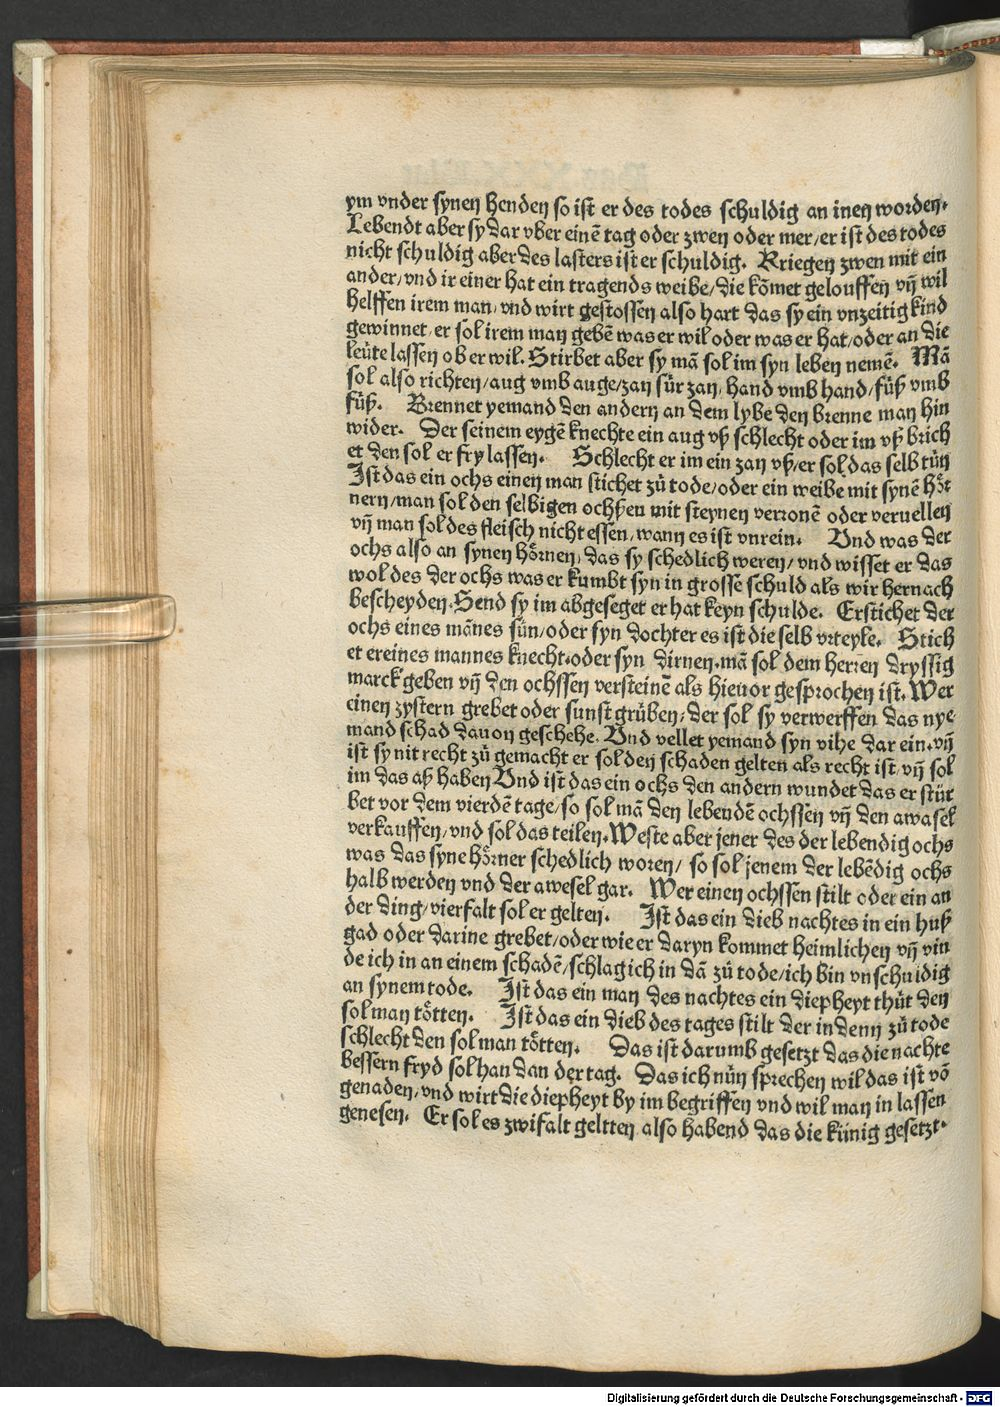 ym vnder synen henden so ist er des todes schuldig an inen worden.
Lebendt aber sy dar vber einē tag oder zwen oder mer/er ist des todes
nicht schuldig aber des lasters ist er schuldig. Kriegen zwen mit ein
ander/vnd ir einer hat ein tragends weibe/die kōmet gelouffen vn̄ wil
helffen irem man/vnd wirt gestossen also hart das sy ein vnzeitig kind
gewinnet/er sol irem man gebē was er wil oder was er hat/oder an die
leüte lassen ob er wil. Stirbet aber sy mā sol im syn leben nemē. Mā
sol also richten/aug vmb auge/zan für zan/hand vmb hand/füß vmb
füß. Brennet yemand den andern an dem lybe den brenne man hin
wider. Der seinem eygē knechte ein aug vß schlecht oder im vß brich
et den sol er fry lassen. Schlecht er im ein zan vß/er sol das selb tůn
Ist das ein ochs einen man stichet zů tode/oder ein weibe mit synē hör
nern/man sol den selbigen ochßen mit steynen verronē oder veruellen
vn̄ man sol des fleisch nicht essen/wann es ist vnrein. Vnd was der
ochs also an synen hörnen/das sy schedlich weren/vnd wisset er das
wol des der ochs was er kumbt syn in grosse schuld als wir hernach
bescheyden. Send sy im abgeseget er hat keyn schulde. Erstichet der
ochs eines mānes sůn/oder syn dochter es ist die selb vrteyle. Stich
et er eines mannes knecht.oder syn dirnen.mā sol dem herren dryssig
marck geben vn̄ den ochssen versteinē als hieuor gesprochen ist. Wer
einen zystern grebet oder sunst grůben/der sol sy verwerffen das nye
mand schad dauon geschehe. Vnd vellet yemand syn vihe dar ein.vn̄
ist sy nit recht zů gemacht er sol den schaden gelten als recht ist/vn̄ sol
im das aß haben Vnd ist das ein ochs den andern wundet das er stür
bet vor dem vierdē tage/so sol mā den lebendē ochssen vn̄ den awasel
verkauffen/vnd sol das teilen. Weste aber jener des der lebendig ochs
was das syne hörner schedlich woren/ so sol jenem der lebēdig ochs
halb werden vnd der awesel gar. Wer einen ochssen stilt oder ein an
der ding/vierfalt sol er gelten. Ist das ein dieb nachtes in ein huß
gad oder darine grebet/oder wie er daryn kommet heimlichen vn̄ vin
de ich in an einem schadē/schlag ich in dā zů tode/ich bin vnschuldig
an synem tode. Ist das ein man des nachtes ein diepheyt thůt den
sol man tötten. Ist das ein dieb des tages stilt der in denn zů tode
schlecht den sol man tötten. Das ist darumb gesetzt das die nachte
bessern fryd sol han dan der tag. Das ich nůn sprechen wil das ist vō
genaden/vnd wirt die diepheyt by im begriffen vnd wil man in lassen
genesen. Er sol es zwifalt geltten also habend das die künig gesetzt.
Digitalisierung gefördert durch die Deutsche Forschungsgemeinschaft - DFG